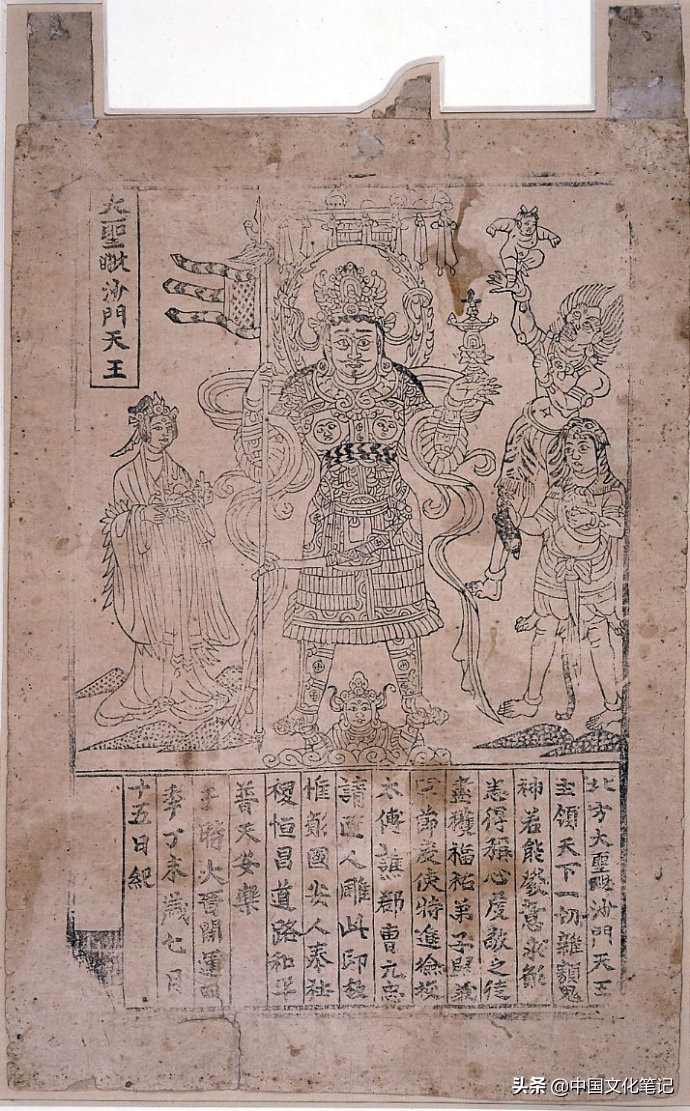 大聖毗沙門天王
北方大聖毗沙門天王
主領天下一切雜類鬼
神若能發意求願
悉得稱心虔敬之徒
盡獲福祐弟子歸義
軍節度使特進檢校
太傅譙郡曹元忠
請匠人雕此印板
惟願國安人泰社
稷恒昌道路和平
普天安樂
于時大晉開運四
年丁未歲七月
十五日紀
头条 @中国文化笔记